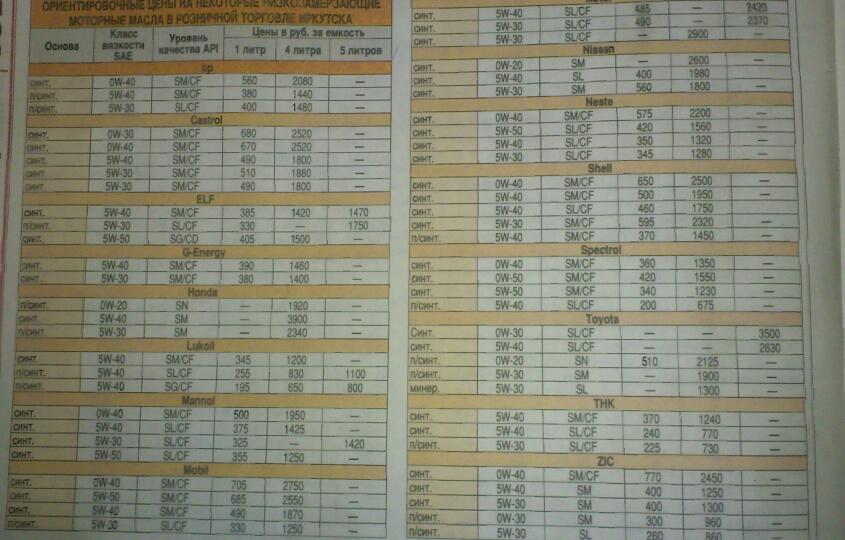 ОРИЕНТИРОВОЧНЫЕ ЦЕНЫ НА НЕКОТОРЫЕ НИЗКОЗАМЕРЗАЮЩИЕ
МОТОРНЫЕ МАСЛА В РОЗНИЧНОЙ ТОРГОВЛЕ ИРКУТСКА
Основа Класс вязкости SAE Уровень качества API Цены в руб. за емкость
1 литр 4 литра 5 литров
синт. 0W-40 SM/CF 560 2080 —
п/синт. 5W-40 SM/CF 380 1440 —
п/синт. 5W-30 SL/CF 400 1480 —
Castrol
синт. 0W-30 SM/CF 680 2520 —
синт. 0W-40 SM/CF 670 2520 —
синт. 5W-40 SM/CF 490 1800 —
синт. 5W-30 SM/CF 510 1880 —
синт. 5W-30 SM/CF 490 1800 —
ELF
синт. 5W-40 SM/CF 385 1420 1470
п/синт. 5W-30 SL/CF 330 — 1750
синт. 5W-50 SG/CD 405 1500 —
G-Energy
синт. 5W-40 SM/CF 390 1460 —
синт. 5W-30 SM/CF 380 1400 —
Honda
п/синт. 0W-20 SN — 1920 —
синт. 5W-40 SM — 3900 —
п/синт. 5W-30 SM — 2340 —
Lukoil
синт. 5W-40 SM/CF 345 1200 —
п/синт. 5W-40 SL/CF 255 830 1100
п/синт. 5W-40 SG/CF 195 650 800
Mannol
синт. 0W-40 SM/CF 500 1950 —
синт. 5W-40 SL/CF 375 1425 —
синт. 5W-30 SL/CF 325 — 1420
синт. 5W-50 SL/CF 355 1250 —
Mobil
синт. 0W-40 SM/CF 705 2750 —
синт. 5W-50 SM/CF 685 2550 —
синт. 5W-40 SM/CF 490 1870 —
п/синт. 5W-30 SL/CF 330 1250 —
синт. 5W-40 SL/CF 485 — 2420
синт. 5W-30 SL/CF 490 — 2370
синт. 5W-30 SL/CF — 2900 —
Nissan
синт. 0W-20 SM — 2600 —
синт. 5W-40 SL 400 1980 —
синт. 5W-30 SM 560 1800 —
Neste
синт. 0W-40 SM/CF 575 2200 —
синт. 5W-50 SL/CF 420 1560 —
синт. 5W-40 SL/CF 350 1320 —
синт. 5W-30 SL/CF 345 1280 —
Shell
синт. 0W-40 SM/CF 650 2500 —
синт. 5W-40 SM/CF 500 1950 —
синт. 5W-40 SL/CF 460 1750
синт. 5W-30 SM/CF 595 2320 —
п/синт. 5W-40 SM/CF 370 1450 —
Spectrol
синт. 0W-40 SM/CF 360 1350 —
синт. 0W-50 SM/CF 420 1550 —
синт. 5W-50 SM/CF 340 1230 —
п/синт. 5W-40 SL/CF 200 675 —
Toyota
Синт. 0W-30 SL/CF — — 3500
синт. 5W-40 SL/CF — — 2630
п/синт. 0W-20 SN 510 2125 —
п/синт. 5W-30 SM — 1900 —
минер. 5W-30 SL — 1300 —
ТНК
синт. 5W-40 SM/CF 370 1240 —
синт. 5W-40 SL/CF 240 770 —
п/синт. 5W-30 SL/CF 225 730 —
ZIC
синт. 0W-40 SM/CF 770 2450 —
синт. 5W-40 SM 400 1250 —
синт. 5W-30 SM 400 1300
п/синт. 0W-30 SM 300 960 —
п/синт. 5W-30 SL 260 860 —